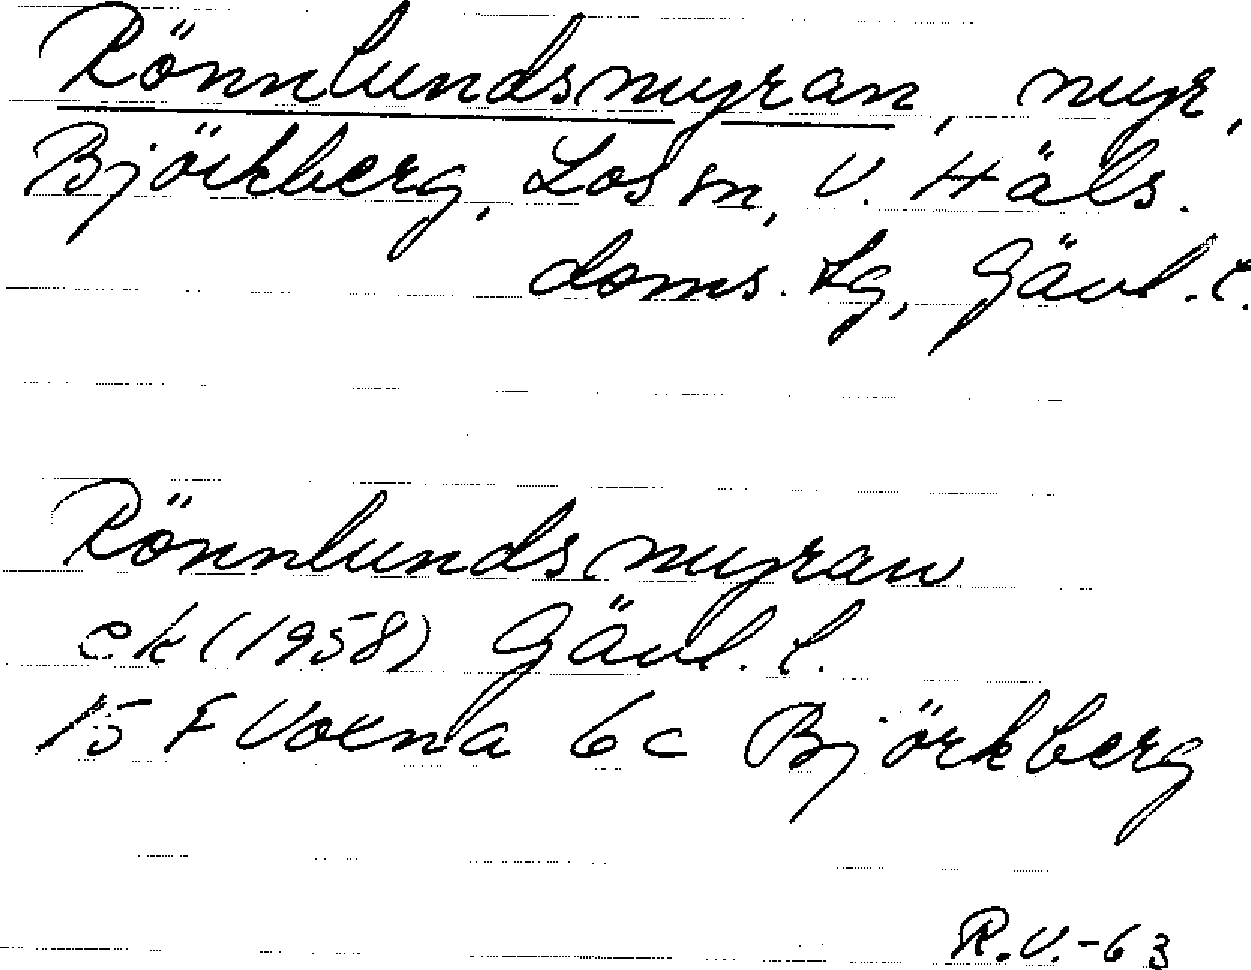 Rönnlundsmyran, myr,
Björkberg, Los sn, V. Häls.
doms. lg, Gävl. l.
Rönnlundsmyran
ek (1958) Gävl. l.
15 F Voxna 6c Björkberg
R.V.-63